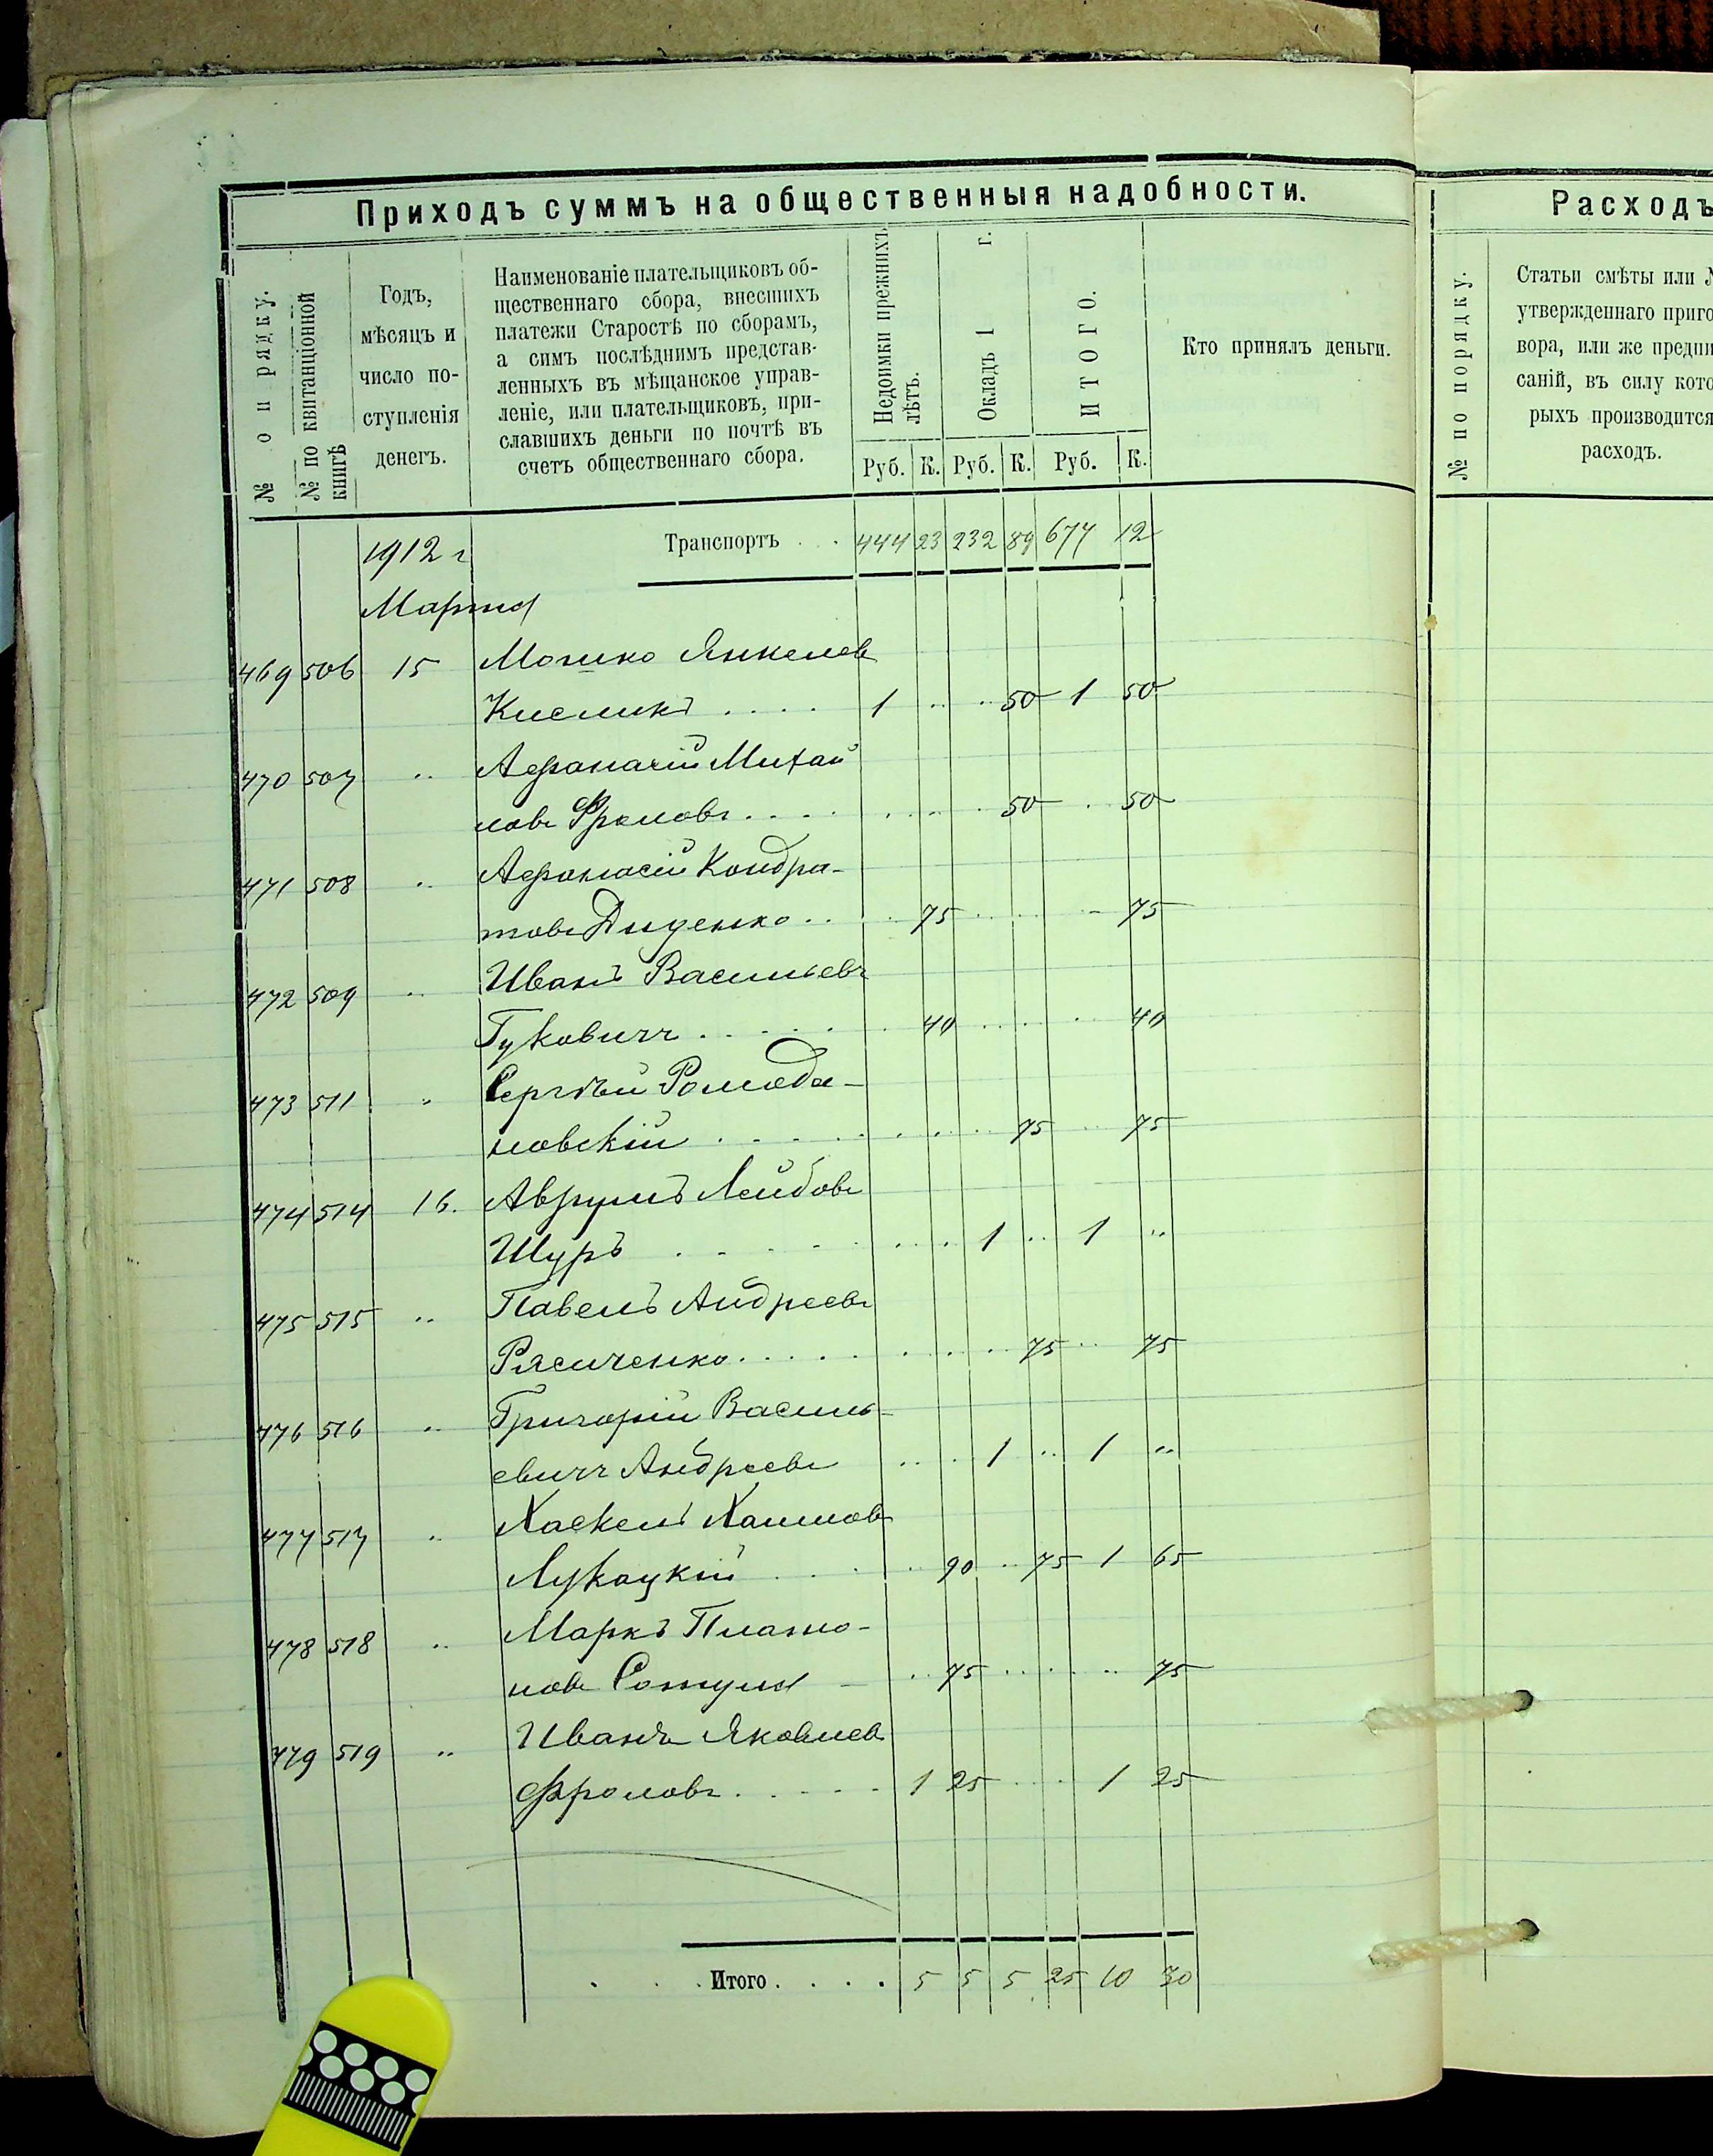 Приходъ суммъ на общественныя надобности.
№ по рядку.
№ по квитанціонной книгѣ
Годъ,
мѣсяцъ и
число по-
ступленія
денегъ.
Наименованіе плательщиковъ об-
щественнаго сбора, внесшихъ
платежи Старостѣ по сборамъ,
а симъ послѣднимъ представ-
ленныхъ въ мѣщанское управ-
леніе, или плательщиковъ, при-
славшихъ деньги по почтѣ въ
счетъ общественнаго сбора.
Недоимки прежнихъ
лѣтъ.
Окладъ 1 г.
ИТОГО.
Руб. К. Руб. К. Руб. К.
Кто принялъ деньги.
1912 г Транспортъ . . 444 23 232 89 677 12
Марта
469 506 15 Мошко Янкелев
Кисликъ .... 1 .. .. 50 1 50
470 507 .. Афанасій Михай
лов Фроловъ .... 50 . 50
471 508 .. Афанасій Кондра-
товъ Диденко .. 75 .... - 75
472 509 .. Иванъ Васильевъ
Гуковичъ ..... 40 .... 40
473 511 .. Сергѣй Ромода-
новскій ..... 75 .. 75
474 514 16. Аврумъ Лейбовъ
Шуръ ..... 1 .. 1 ..
475 515 .. Павелъ Андреевъ
Рясиченко ..... 75 .. 75
476 516 .. Григорій Василь-
евичъ Андреевъ .. . 1 .. 1 ..
477 517 .. Хаскель Хаимов
Лукацкій .... 90 .. 75 1 65
478 518 .. Маркъ Плато-
нов .. 75 .... .. 75
479 519 .. Иванъ Яковлев
Фроловъ ..... 1 25 .... 1 25
. . . Итого . . . . 5 5 5 25 10 30
Расходъ
№ по порядку.
Статьи смѣты или
утвержденнаго приго
вора, или же предпи
саній, въ силу кото
рыхъ производится
расходъ.